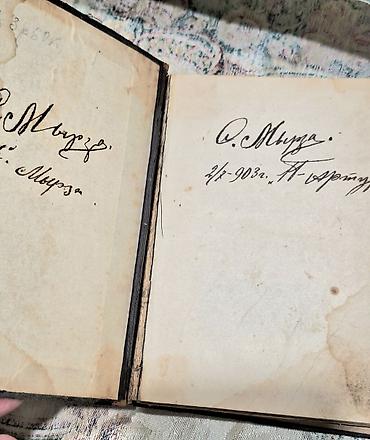 Мырза.
Мырза
О. Мырза.
2/X-903г. „П-Арту